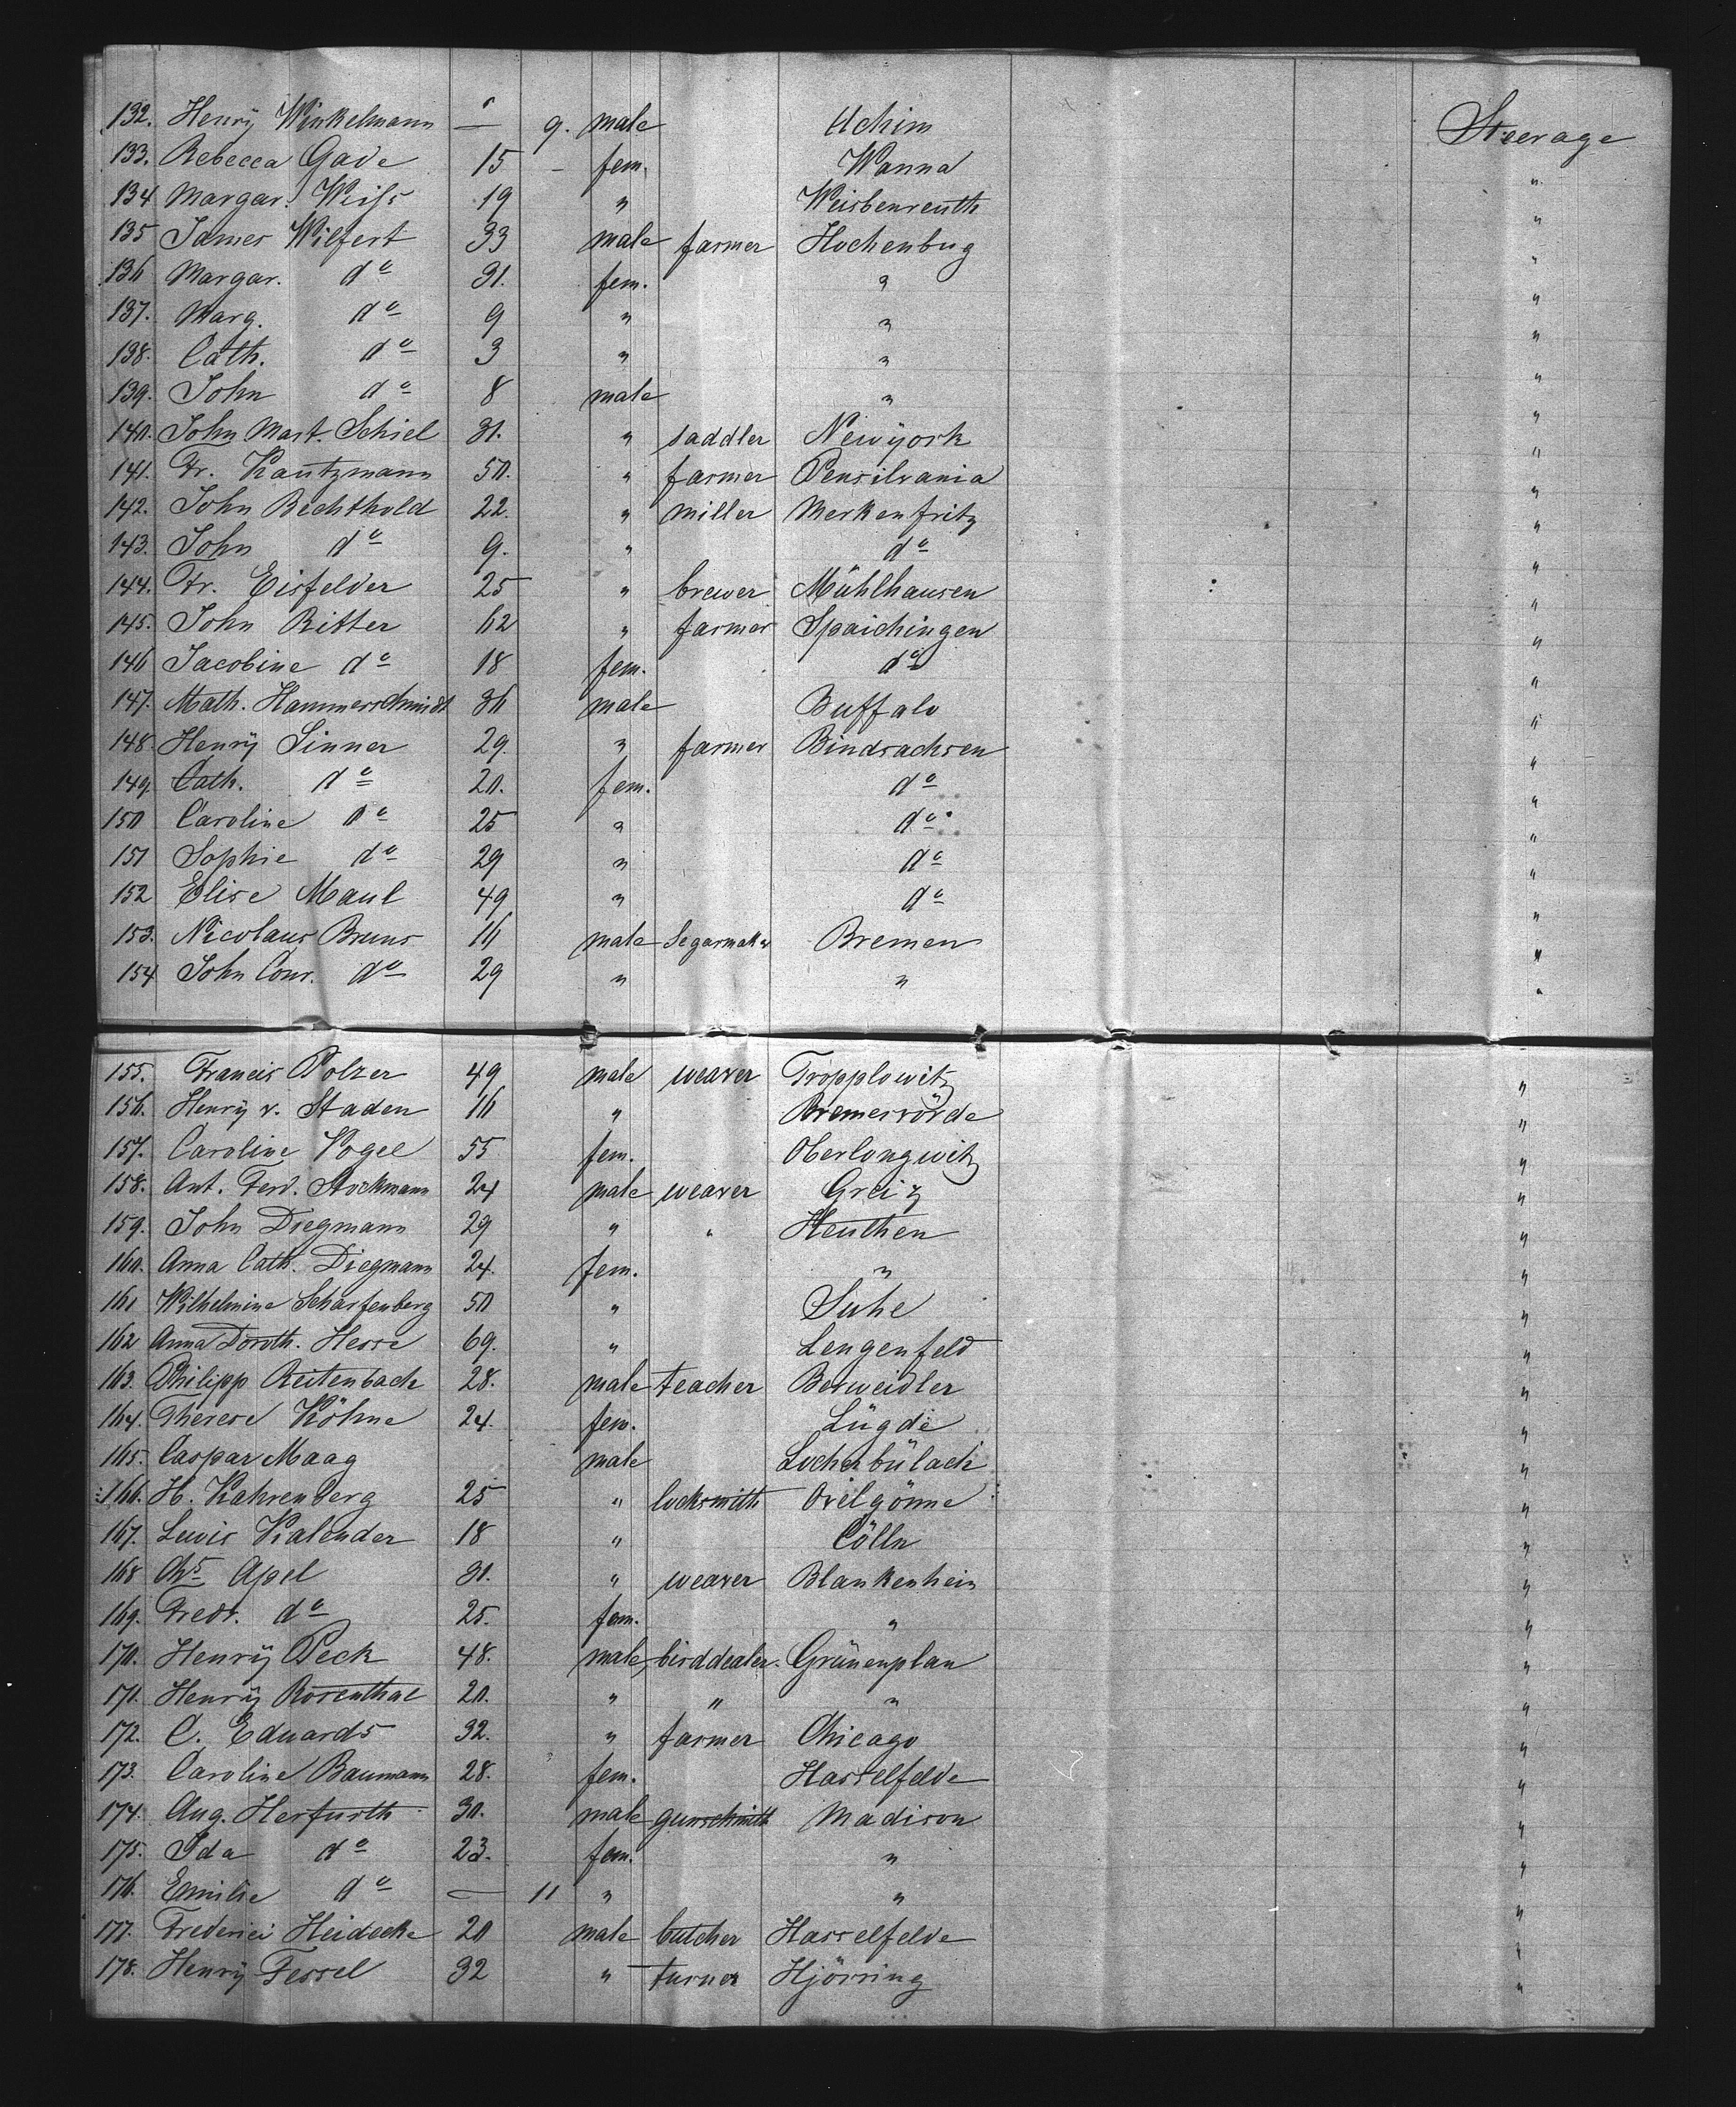 132. Henrÿ Winkelmann — 9. male Achim Steerage
133. Rebecca Gade 15 – fem. Wanna "
134 Margar. Weiss 19 " Weisbenreuth "
135 James Wilfert 33 male farmer Hochenbug "
136 Margar. do 31. fem. " "
137. Marg. do 9 " " "
138. Cath. do 3 " " "
139. John do 8 male " "
140. John Mart. Schiel 31. " saddler Newÿork "
141. Fr. Kautzmann 50. " farmer Pensilvania "
142. John Bechthold 22. " miller Merkenfritz "
143. John do 9. " do "
144. Fr. Eisfelder 25 " brewer Mühlhausen "
145. John Ritter 62 " farmer Spaichingen "
146 Jacobine do 18 fem. do "
147. Math. Hammerschmidt 36 male Buffalo "
148 Henrÿ Sinner 29. " farmer Bindsachsen "
149. Cath. do 20. fem. do "
150 Caroline do 25 " do "
151 Sophie do 29 " do "
152 Elise Maul 49 " do "
153. Nicolaus Bruns 16 male Segarmakr Bremen "
154 John Conr. do 29 " " "
155. Francis Polzer 49 male weaver Tropplowitz "
156. Henrÿ v. Staden 16 " Bremervörde "
157. Caroline Vogel 55 fem. Oberlungwitz "
158. Ant. Ferd. Stockmann 24 male weaver Greiz "
159. John Diegmann 29 " " Heuthen "
160. Anna Cath. Diegmann 24. fem. " "
161 Wilhelmine Scharfenberg 50 " Suhe "
162 Anna Doroth. Hesse 69. " Lengenfeld "
163. Philipp Reitenbach 28. male teacher Berweidler "
164. Therese Köhne 24. fem. Lügde "
165. Caspar Maag male Lochabülach "
166. H. Kahrenberg 25 " locksmith Ovelgönne "
167. Lewis Kalender 18 " Cölln "
168 Chs Apel 31. " weaver Blankenhein "
169. Fredr. do 25. fem. " "
170. Henrÿ Peck 48. male birddealer. Grünenplan "
171. Henrÿ Rosenthal 20. " " " "
172. C. Eduards 32. " farmer Chicago "
173. Caroline Baumann 28. fem. Hasselfelde "
174. Aug. Herfurth 30. male gunschmith Madison "
175. Ida do 23. fem. " "
176. Emilie do — 11 " " "
177. Frederici Heidecke 20 male butcher Hasselfelde "
178. Henrÿ Fessel 32 " turner Hjörring "